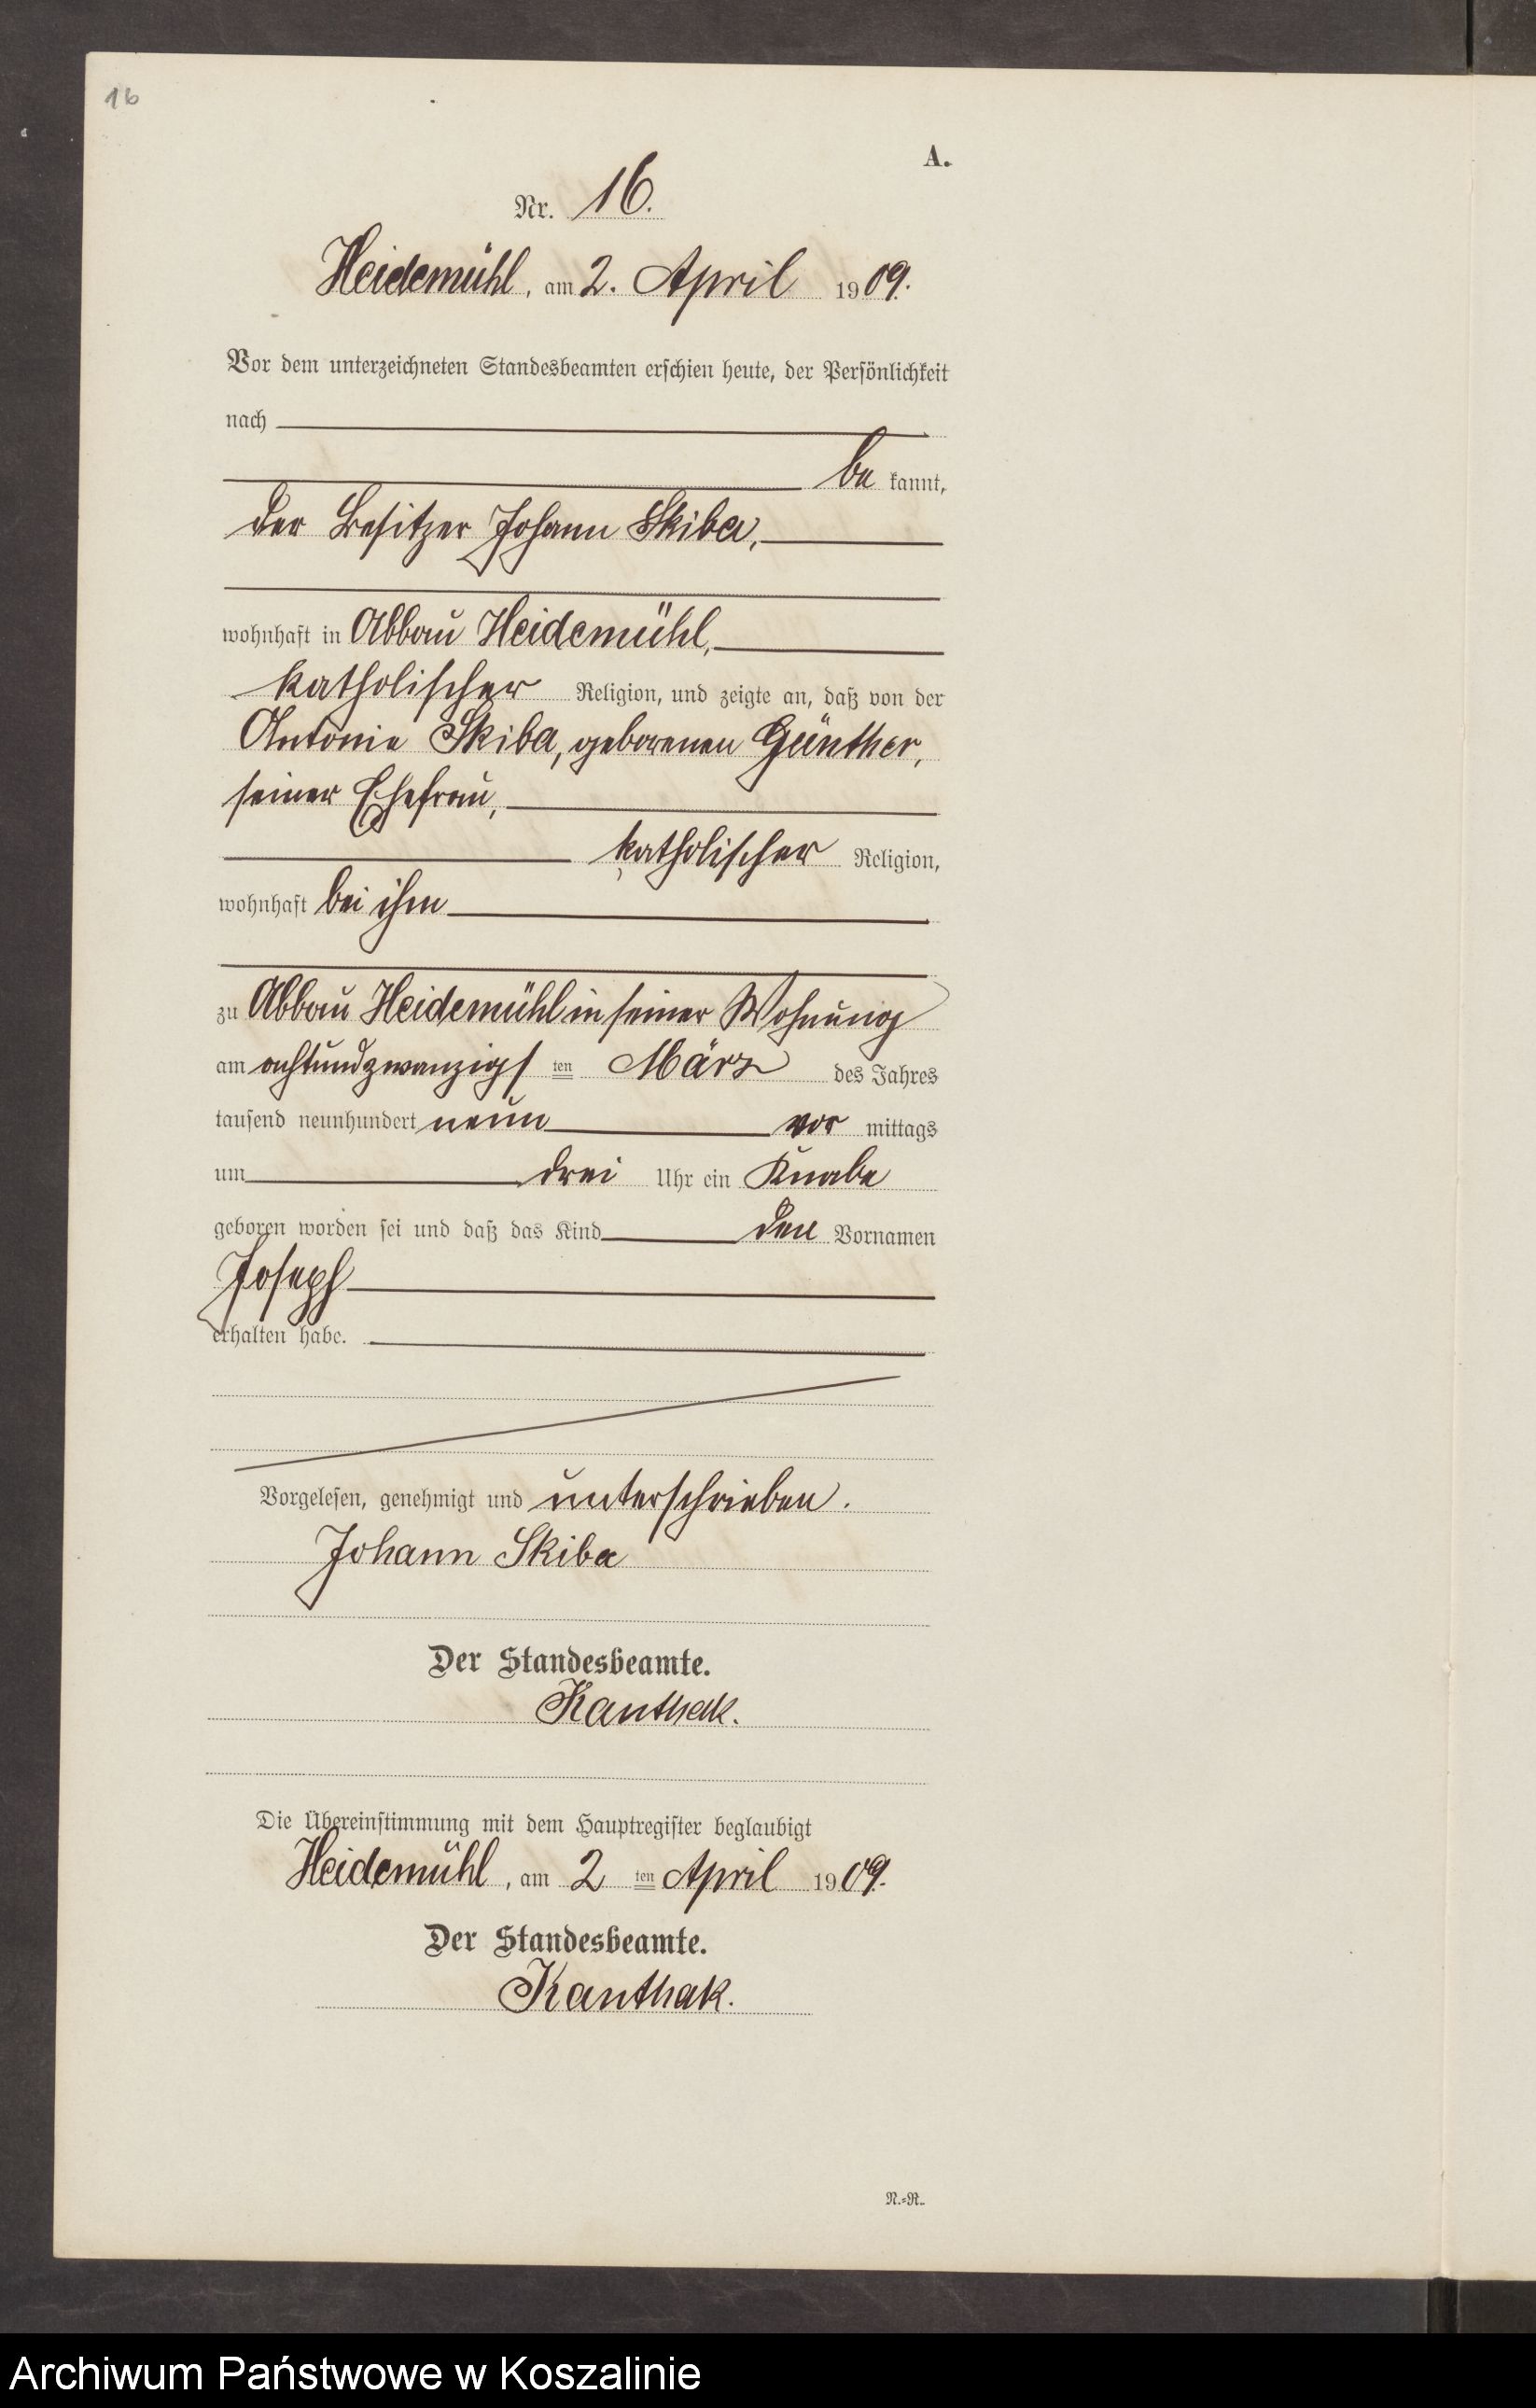 16
A.
Nr. 16.
Heidemühl, am 2. April 1909.
Vor dem unterzeichneten Standesbeamten erschien heute, der Persönlichkeit
nach
be kannt,
der Besitzer Johann Skiba,
wohnhaft in Abbau Heidemühl,
katholischer Religion, und zeigte an, daß von der
Antonie Skiba, geborenen Günther,
seiner Ehefrau,
katholischer Religion,
wohnhaft bei ihm
zu Abbau Heidemühl in seiner Wohnung
am achtundzwanzigsten März des Jahres
tausend neunhundert neun vor mittags
um drei Uhr ein Knabe
geboren worden sei und daß das Kind den Vornamen
Joseph
erhalten habe.
Vorgelesen, genehmigt und unterschrieben.
Johann Skiba
Der Standesbeamte.
Kanthak.
Die Übereinstimmung mit dem Hauptregister beglaubigt
Heidemühl, am 2 ten April 1909.
Der Standesbeamte.
Kanthak.
N.-R.
Archiwum Państwowe w Koszalinie